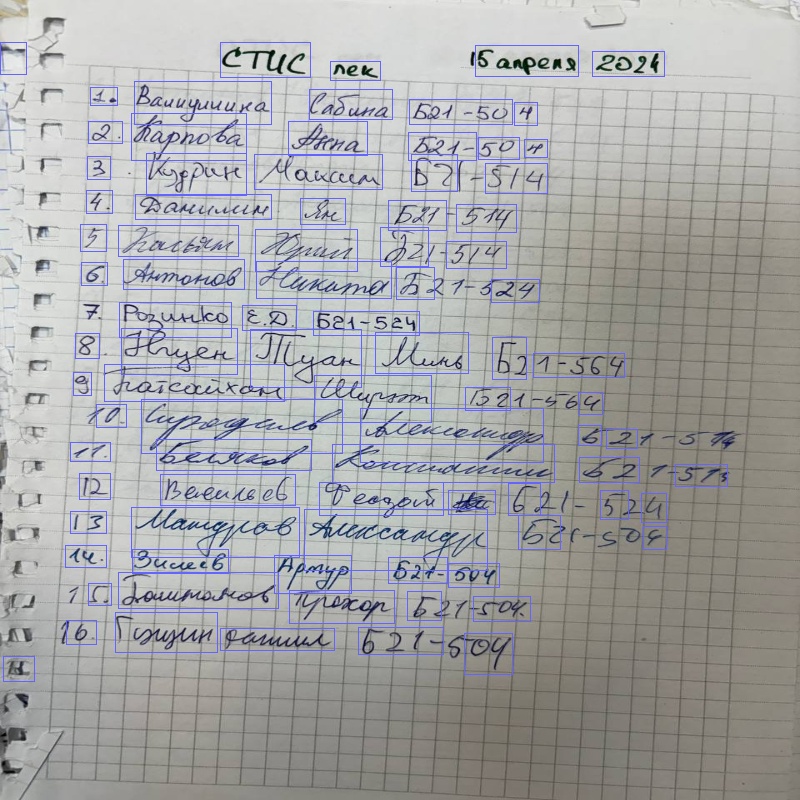 СТИС лек 15 апреля 2024
1. Валиуллина Сабина Б21-504
2. Карпова Анна Б21-504
3. Кудрин Максим Б21-514
4. Данилин Ян Б21-514
5 Касьян Юрий Б21-514
6. Антонов Никита Б21-524
7. Розинко Е.Д. Б21-524
8. Нгуен Туан Минь Б21-564
9 Батсайхан Б21-564
10. Александр Б21-514
11. Беляков Константин Б21-513
12 Васильев Феодот Б21-524
13 Мандров Александр Б21-504
14. Зилеев Артур Б21-504
15. Прохор Б21-504.
16. Б21-504